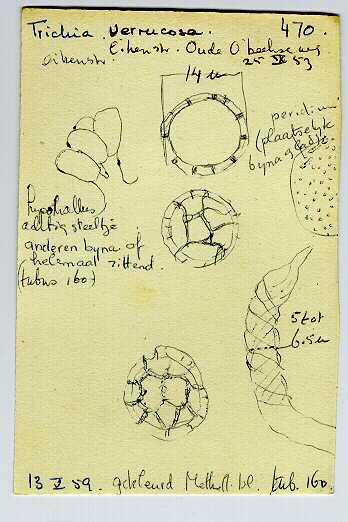 Trichia verrucosa. 470.
Eikenstr. Oude O'beekse weg
eikenstr. 25 XI 53
14 u
peridium
(plaatselijk
byna gladde
hypothallus
adtig steeltje
anderen byna of
helemaal zittend.
(tubus 160)
5 tot
6.5 u
13 X 59. gekleurd Methyl. bl. tub. 160.